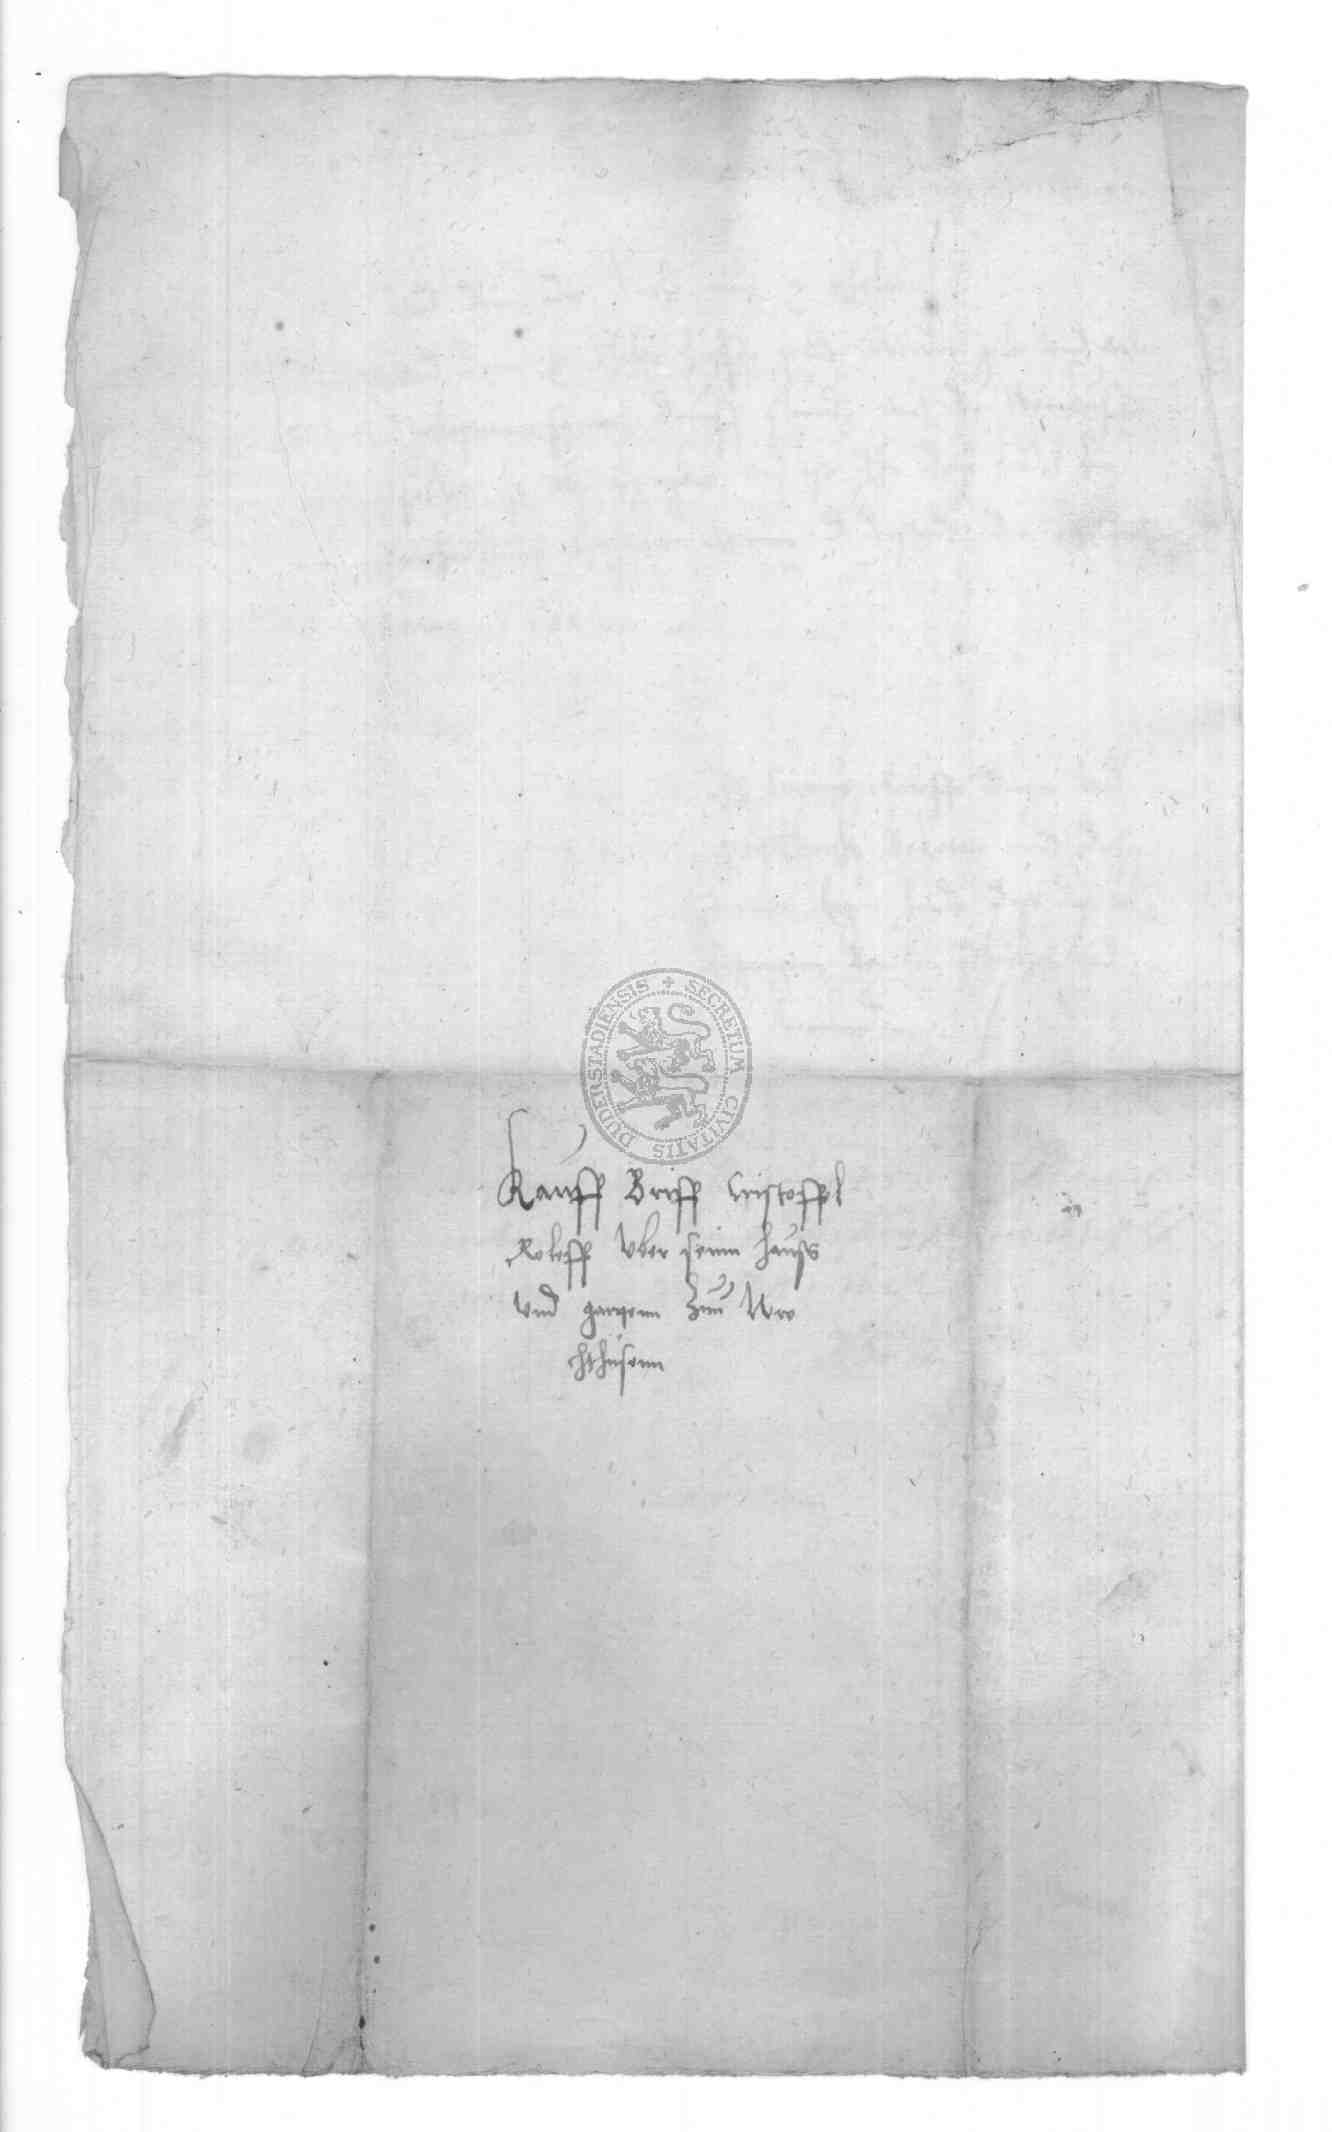 SECRETUM CIVITATIS DUDERSTADIENSIS
Kauff Briff Cristoffel
Roleff vber seinn hauss
vnd gartenn zuu Wec
hthusenn